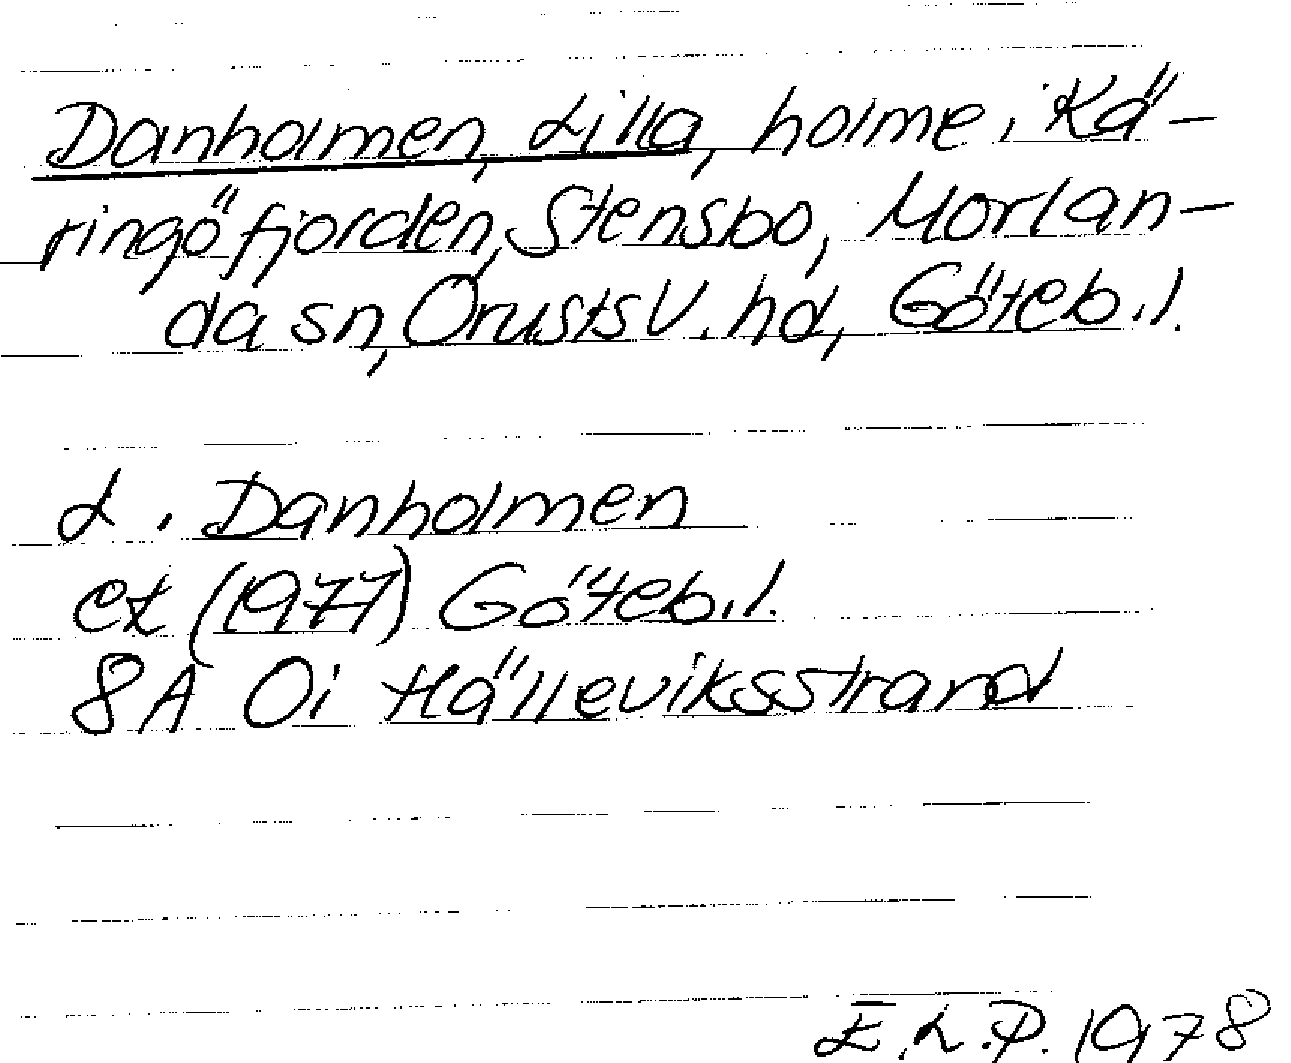 Danholmen, Lilla, holme i Kä-
ringöfjorden, Stensbo, Morlan-
da sn, Orusts V. hd, Göteb. l.
L. Danholmen
ek (1977) Göteb. l.
8A 0i Hälleviksstrand
E.L.P. 1978